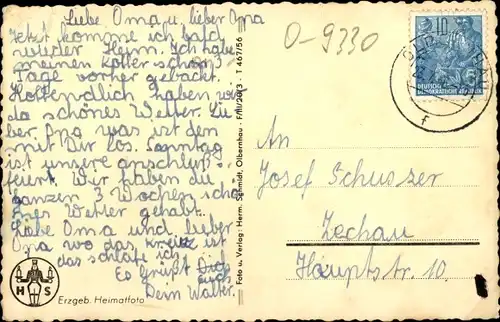 Liebe Oma u. lieber Opa
Jetzt komme ich bald
wieder Heim. Ich habe
meinen Koffer schon 3
Tage vorher gepackt.
Hoffendlich haben wir
da schönes Wetter. Lie-
ber Opa was ist den
mit Dir los. Sonntag
ist unsere
feier. Wir haben die
ganzen 3 Wochen schö-
nes Wetter gehabt.
Liebe Oma und lieber
Opa wo das Kreuz ist
das schlafe ich
Es grüßt Dich
euch
Dein Walter.
H S
Erzgeb. Heimatfoto
Foto u. Verlag: Herm. Schmidt, Olbernhau - F/III/20/3 - T 467/56
O-9330
DEUTSCHE
DEMOKRATISCHE REPUBLIK
5
f
An
Josef Schusser
Zechau
Hauptstr. 10